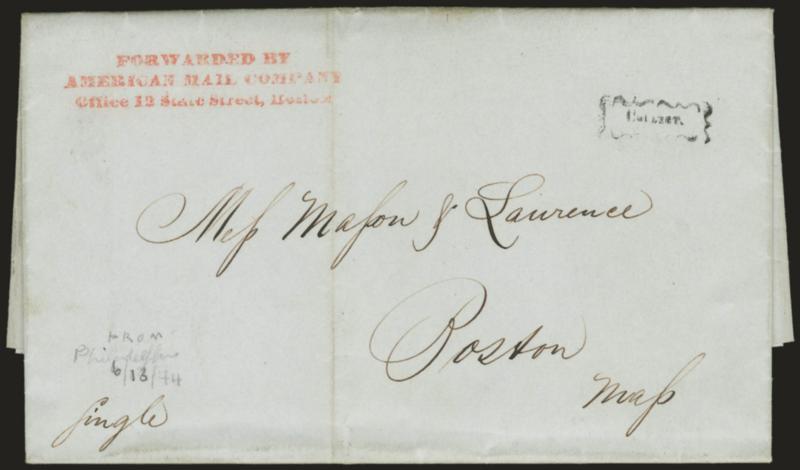 FORWARDED BY
AMERICAN MAIL COMPANY
Office 12 State Street, Boston
COLLECT.
Mess Mason & Lawrence
Boston
Mass
FROM
Philadelphia
6/13/44
single